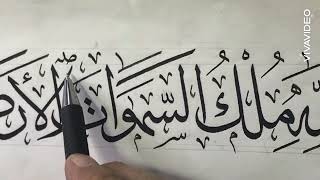 لِلَّهِ مُلْكُ السَّمَوَاتِ وَالْأَرْضِ
VIVAVIDEO